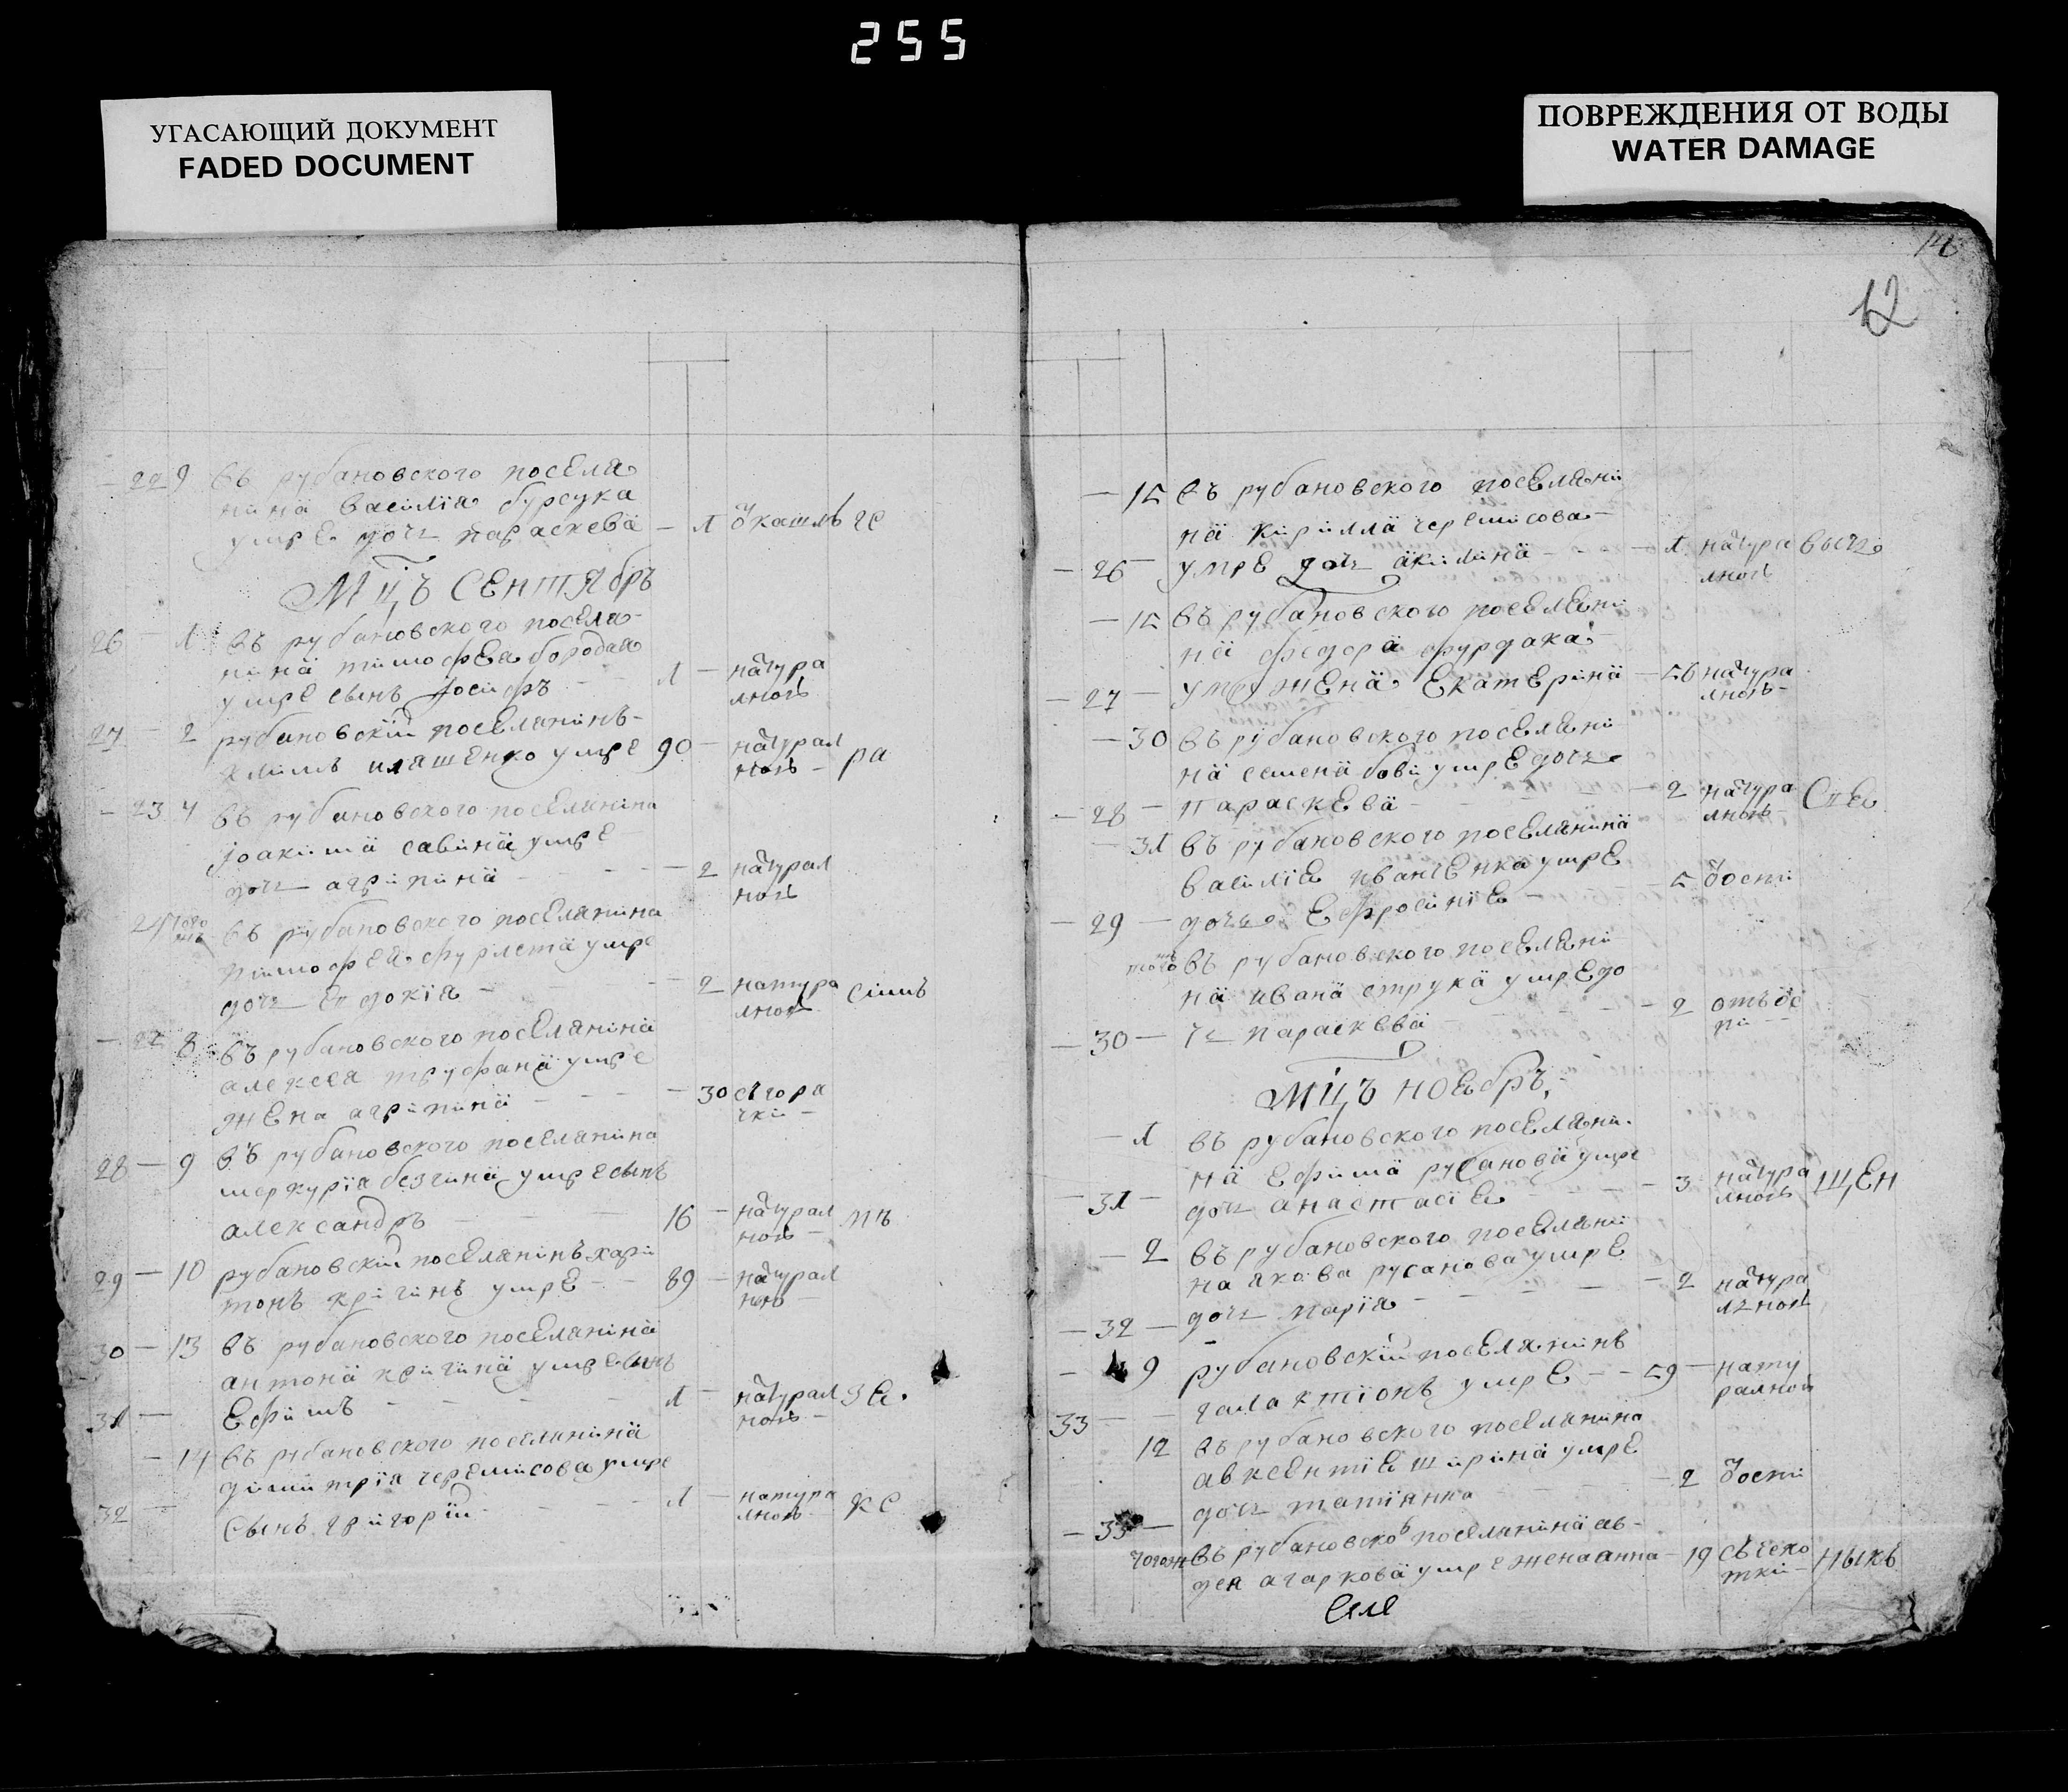 255
УГАСАЮЩИЙ ДОКУМЕНТ
FADED DOCUMENT
ПОВРЕЖДЕНИЯ ОТ ВОДЫ
WATER DAMAGE
12
22 9 въ рубановского поселя
нина василїя бурсука
умре дочь параскева 1 кашль
Мцъ сентябрь
26 1 въ рубановского поселя-
нина тимофея бородая
умре сынъ Іосифъ 1 натура
лною
27 2 рубановскїй поселянинъ-
климъ иляшенко умре 90 натурал
ною ра
23 4 въ рубановского поселянина
Іоакима савина умре
дочь агрипина 2 натурал
ною
въ рубановского поселянина
тимофея фурлета умре
дочь евдокїя 2 натура
лною сїимъ
8 въ рубановского поселянина
алексея труфана умре
жена агрипина 30 сгора
чкі
28 9 въ рубановского поселянина
меркурїя безгина умре сынъ
александръ 16 натурал
ною
29 10 рубановскїй поселянинъ хари
тонъ кричинъ умре 89 натурал
ною
30 13 въ рубановского поселянина
антона кричина умре сынъ
31 Ефимъ 1 натурал
ною
14 въ рубановского поселянина
димитрїя черемисова умре
32 сынъ григорїй 1 натура
лною
15 въ рубановского поселяни
на кирилла черемисова
26 умре дочь акилина 1 натура
лною
15 въ рубановского поселени
на федора фурдака
27 умре жена Екатерина 56 натура
лною
30 въ рубановского поселяни
на семена бови умре дочь
28 параскева 2 натура
лною
31 въ рубановского поселянина
василїе иванченка умре
29 дочь Ефросинїе 5 воспи
въ рубановского поселяни
на ивана струка умре до
30 чь параскева 2 отъ вос
пи
Мцъ ноебръ
1 въ рубановского поселяни
на Ефима рубанова умре
31 дочь анастасїе 3 натура
лною щен
2 въ рубановского поселяни
на якова русанова умре
32 дочь марїя 2 натура
лною
9 рубановскїй поселянинъ
галактїонъ умре 59 нату
ралной
33
12 въ рубановского поселянина
авксентїе ширина умре
дочь татїянна 2 воспи
33
тогож въ рубановско поселянина ав-
дея агаркова умре жена анна 19 съ чехо
тки ныкъ